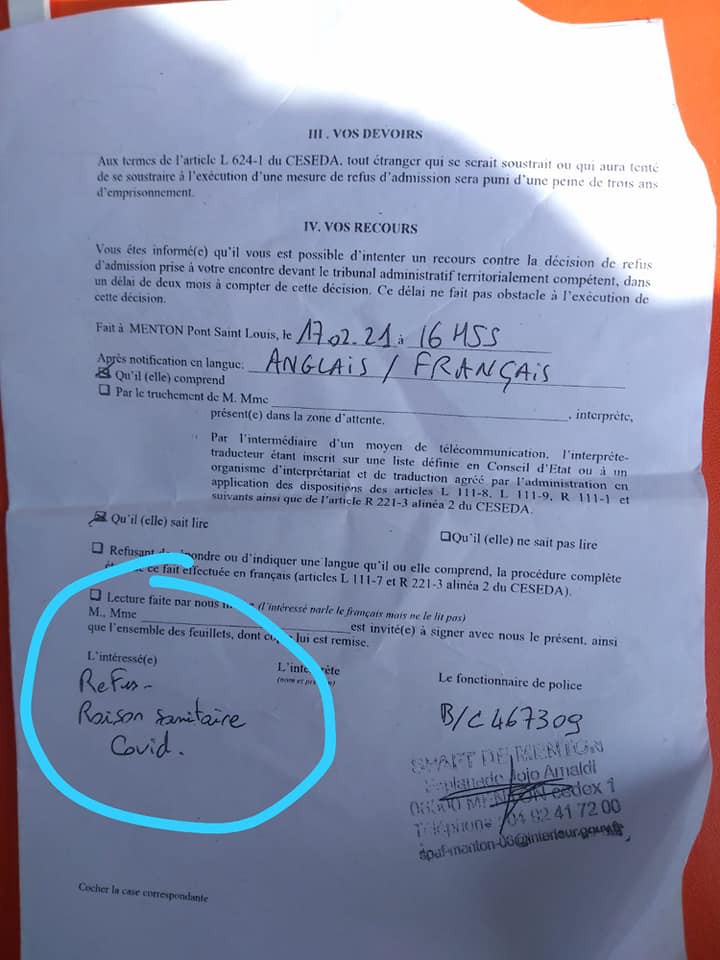 III . VOS DEVOIRS
Aux termes de l'article L 624-1 du CESEDA, tout étranger qui se serait soustrait ou qui aura tenté
de se soustraire à l'exécution d'une mesure de refus d'admission sera puni d'une peine de trois ans
d'emprisonnement.
IV. VOS RECOURS
Vous êtes informé(e) qu'il vous est possible d'intenter un recours contre la décision de refus
d'admission prise à votre encontre devant le tribunal administratif territorialement compétent, dans
un délai de deux mois à compter de cette décision. Ce délai ne fait pas obstacle à l'exécution de
cette décision.
Fait à MENTON Pont Saint Louis, le 17.02.21 à 16H55
Après notification en langue: ANGLAIS / FRANÇAIS
Qu'il (elle) comprend
Par le truchement de M. Mme , interprète,
présent(e) dans la zone d'attente.
Par l'intermédiaire d'un moyen de télécommunication, l'interprète-
traducteur étant inscrit sur une liste définie en Conseil d'Etat ou à un
organisme d'interprétariat et de traduction agréé par l'administration en
application des dispositions des articles L 111-8, L 111-9, R 111-1 et
suivants ainsi que de l'article R 221-3 alinéa 2 du CESEDA.
Qu'il (elle) sait lire
Qu'il (elle) ne sait pas lire
Refusant ou d'indiquer une langue qu'il ou elle comprend, la procédure complète
ce fait effectuée en français (articles L 111-7 et R 221-3 alinéa 2 du CESEDA).
Lecture faite par nous (l'intéressé parle le français mais ne le lit pas)
M., Mme est invité(e) à signer avec nous le présent, ainsi
que l'ensemble des feuillets, dont lui est remise.
L'intéressé(e)
L'interprète
(nom et )
Le fonctionnaire de police
Refus -
Raison sanitaire
Covid.
B/C 467309
SPAFT DE MENTON
Esplanade Jojo Arnaldi
06500 MENTON cedex 1
Téléphone : 04 92 41 72 00
spaf-menton-06@interieur.gouv.fr
Cocher la case correspondante